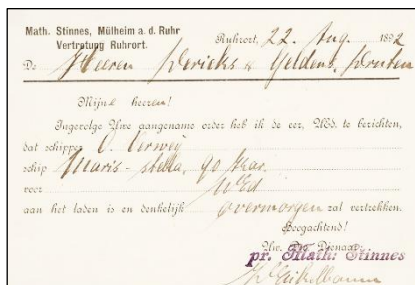 Math. Stinnes, Mülheim a. d. Ruhr
Vertretung Ruhrort.
Ruhrort, 22 Aug. 1892
De Heeren Dericks & Geldens, Druten
Mijne heeren!
Ingevolge Uwe aangename order heb ik de eer, UEd. te berichten,
dat schipper O. Verweij
schip Maris-stella, 90 Kar.
voor UEd
aan het laden is en denkelijk overmorgen zal vertrekken.
Hoogachtend!
Uw. Dw Dienaar
pr. Math: Stinnes